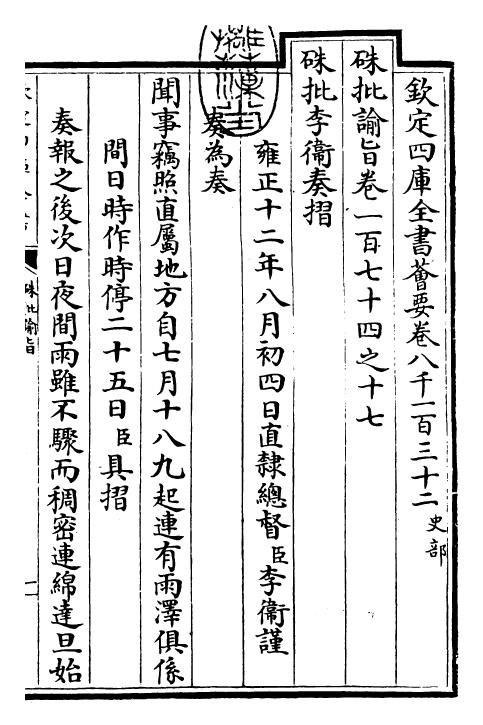 欽定四庫全書薈要卷八千一百三十二史部
硃批諭旨卷一百七十四之十七
硃批李衞奏摺
雍正十二年八月初四日直隸總督臣李衞謹
奏為奏
聞事竊照直屬地方自七月十八九起連有雨澤俱係
間日時作時停二十五日臣具摺
奏報之後次日夜間雨雖不驟而稠密連綿達旦始
硃批諭旨
一